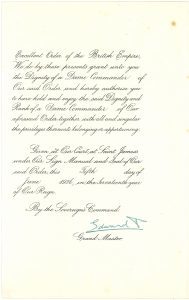 Excellent Order of the British Empire,
We do by these presents grant unto you
the Dignity of a Dame Commander of
Our said Order and hereby authorise you
to have hold and enjoy the said Dignity and
Rank of a Dame Commander of Our
aforesaid Order together with all and singular
the privileges thereunto belonging or appertaining.
Given at Our Court at Saint James's
under Our Sign Manual and Seal of Our
said Order this Fifth day of
June 1926, in the Seventeenth year
of Our Reign.
By the Sovereign's Command.
Edward P
Grand Master.